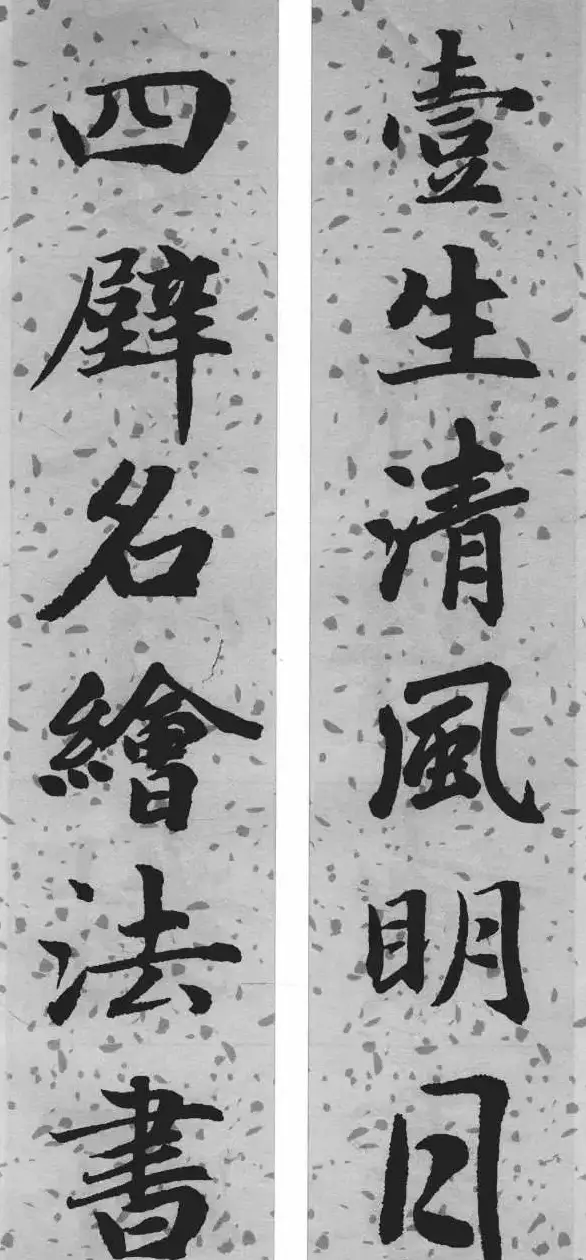 壹生清風明月
四壁名繪法書